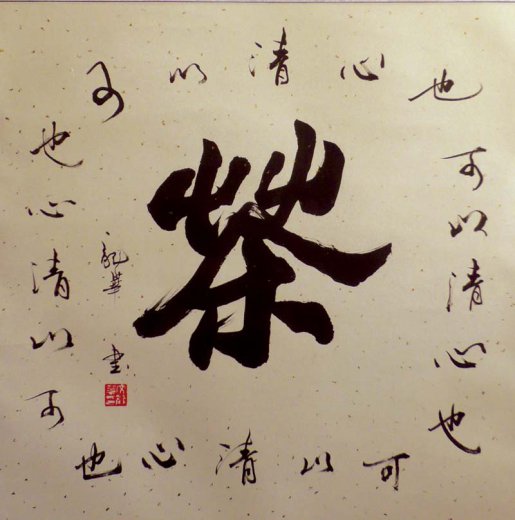 可以清心也
可以清心也
可以清心也
可以清心也
茶
龍華 書